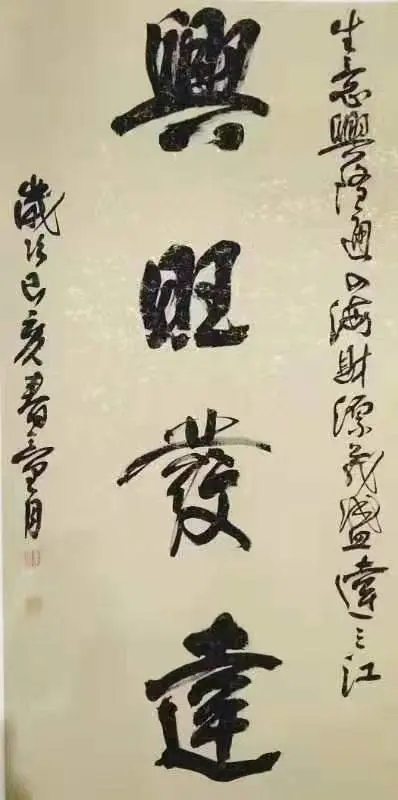 生意興隆通四海財源茂盛達三江
興旺發達
歲次己亥月